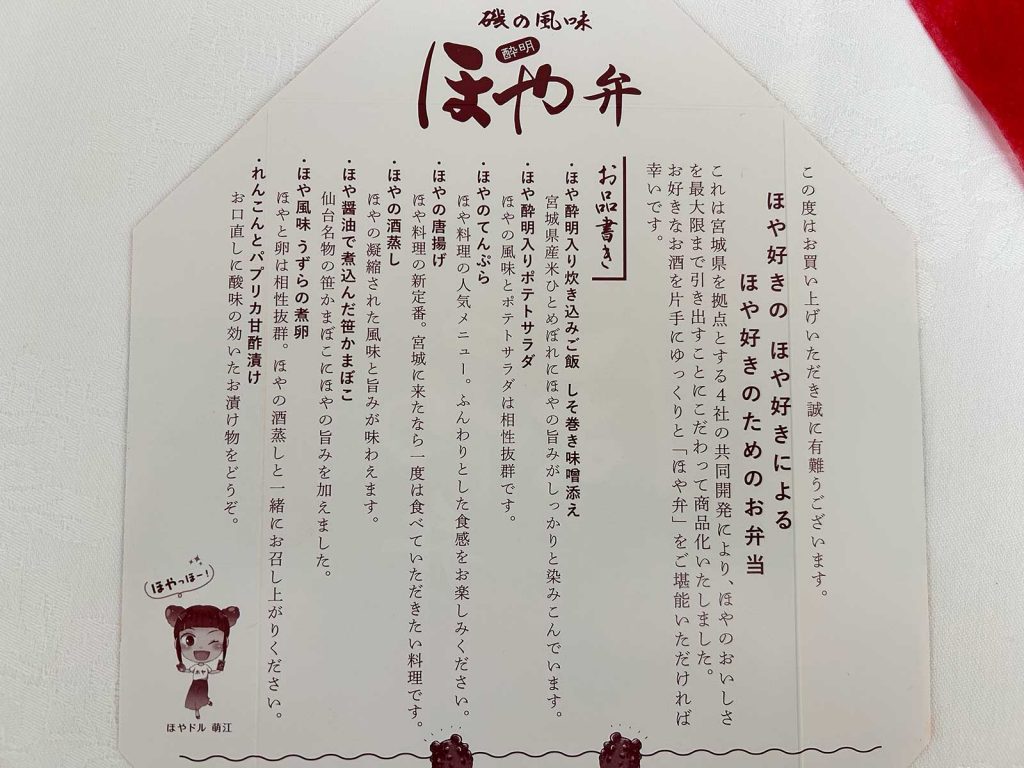 磯の風味
酔明
ほや弁
この度はお買い上げいただき誠に有難うございます。
ほや好きの ほや好きによる
ほや好きのためのお弁当
これは宮城県を拠点とする4社の共同開発により、ほやのおいしさ
を最大限まで引き出すことにこだわって商品化いたしました。
お好きなお酒を片手にゆっくりと「ほや弁」をご堪能いただければ
幸いです。
お品書き
・ほや酔明入り炊き込みご飯 しそ巻き味噌添え
宮城県産米ひとめぼれにほやの旨みがしっかりと染みこんでいます。
・ほや酔明入りポテトサラダ
ほやの風味とポテトサラダは相性抜群です。
・ほやのてんぷら
ほや料理の人気メニュー。ふんわりとした食感をお楽しみください。
・ほやの唐揚げ
ほや料理の新定番。宮城に来たなら一度は食べていただきたい料理です。
・ほやの酒蒸し
ほやの凝縮された風味と旨みが味わえます。
・ほや醤油で煮込んだ笹かまぼこ
仙台名物の笹かまぼこにほやの旨みを加えました。
・ほや風味 うずらの煮卵
ほやと卵は相性抜群。ほやの酒蒸しと一緒にお召し上がりください。
・れんこんとパプリカ甘酢漬け
お口直しに酸味の効いたお漬け物をどうぞ。
ほやっほー!
ほや
ほやドル 萌江